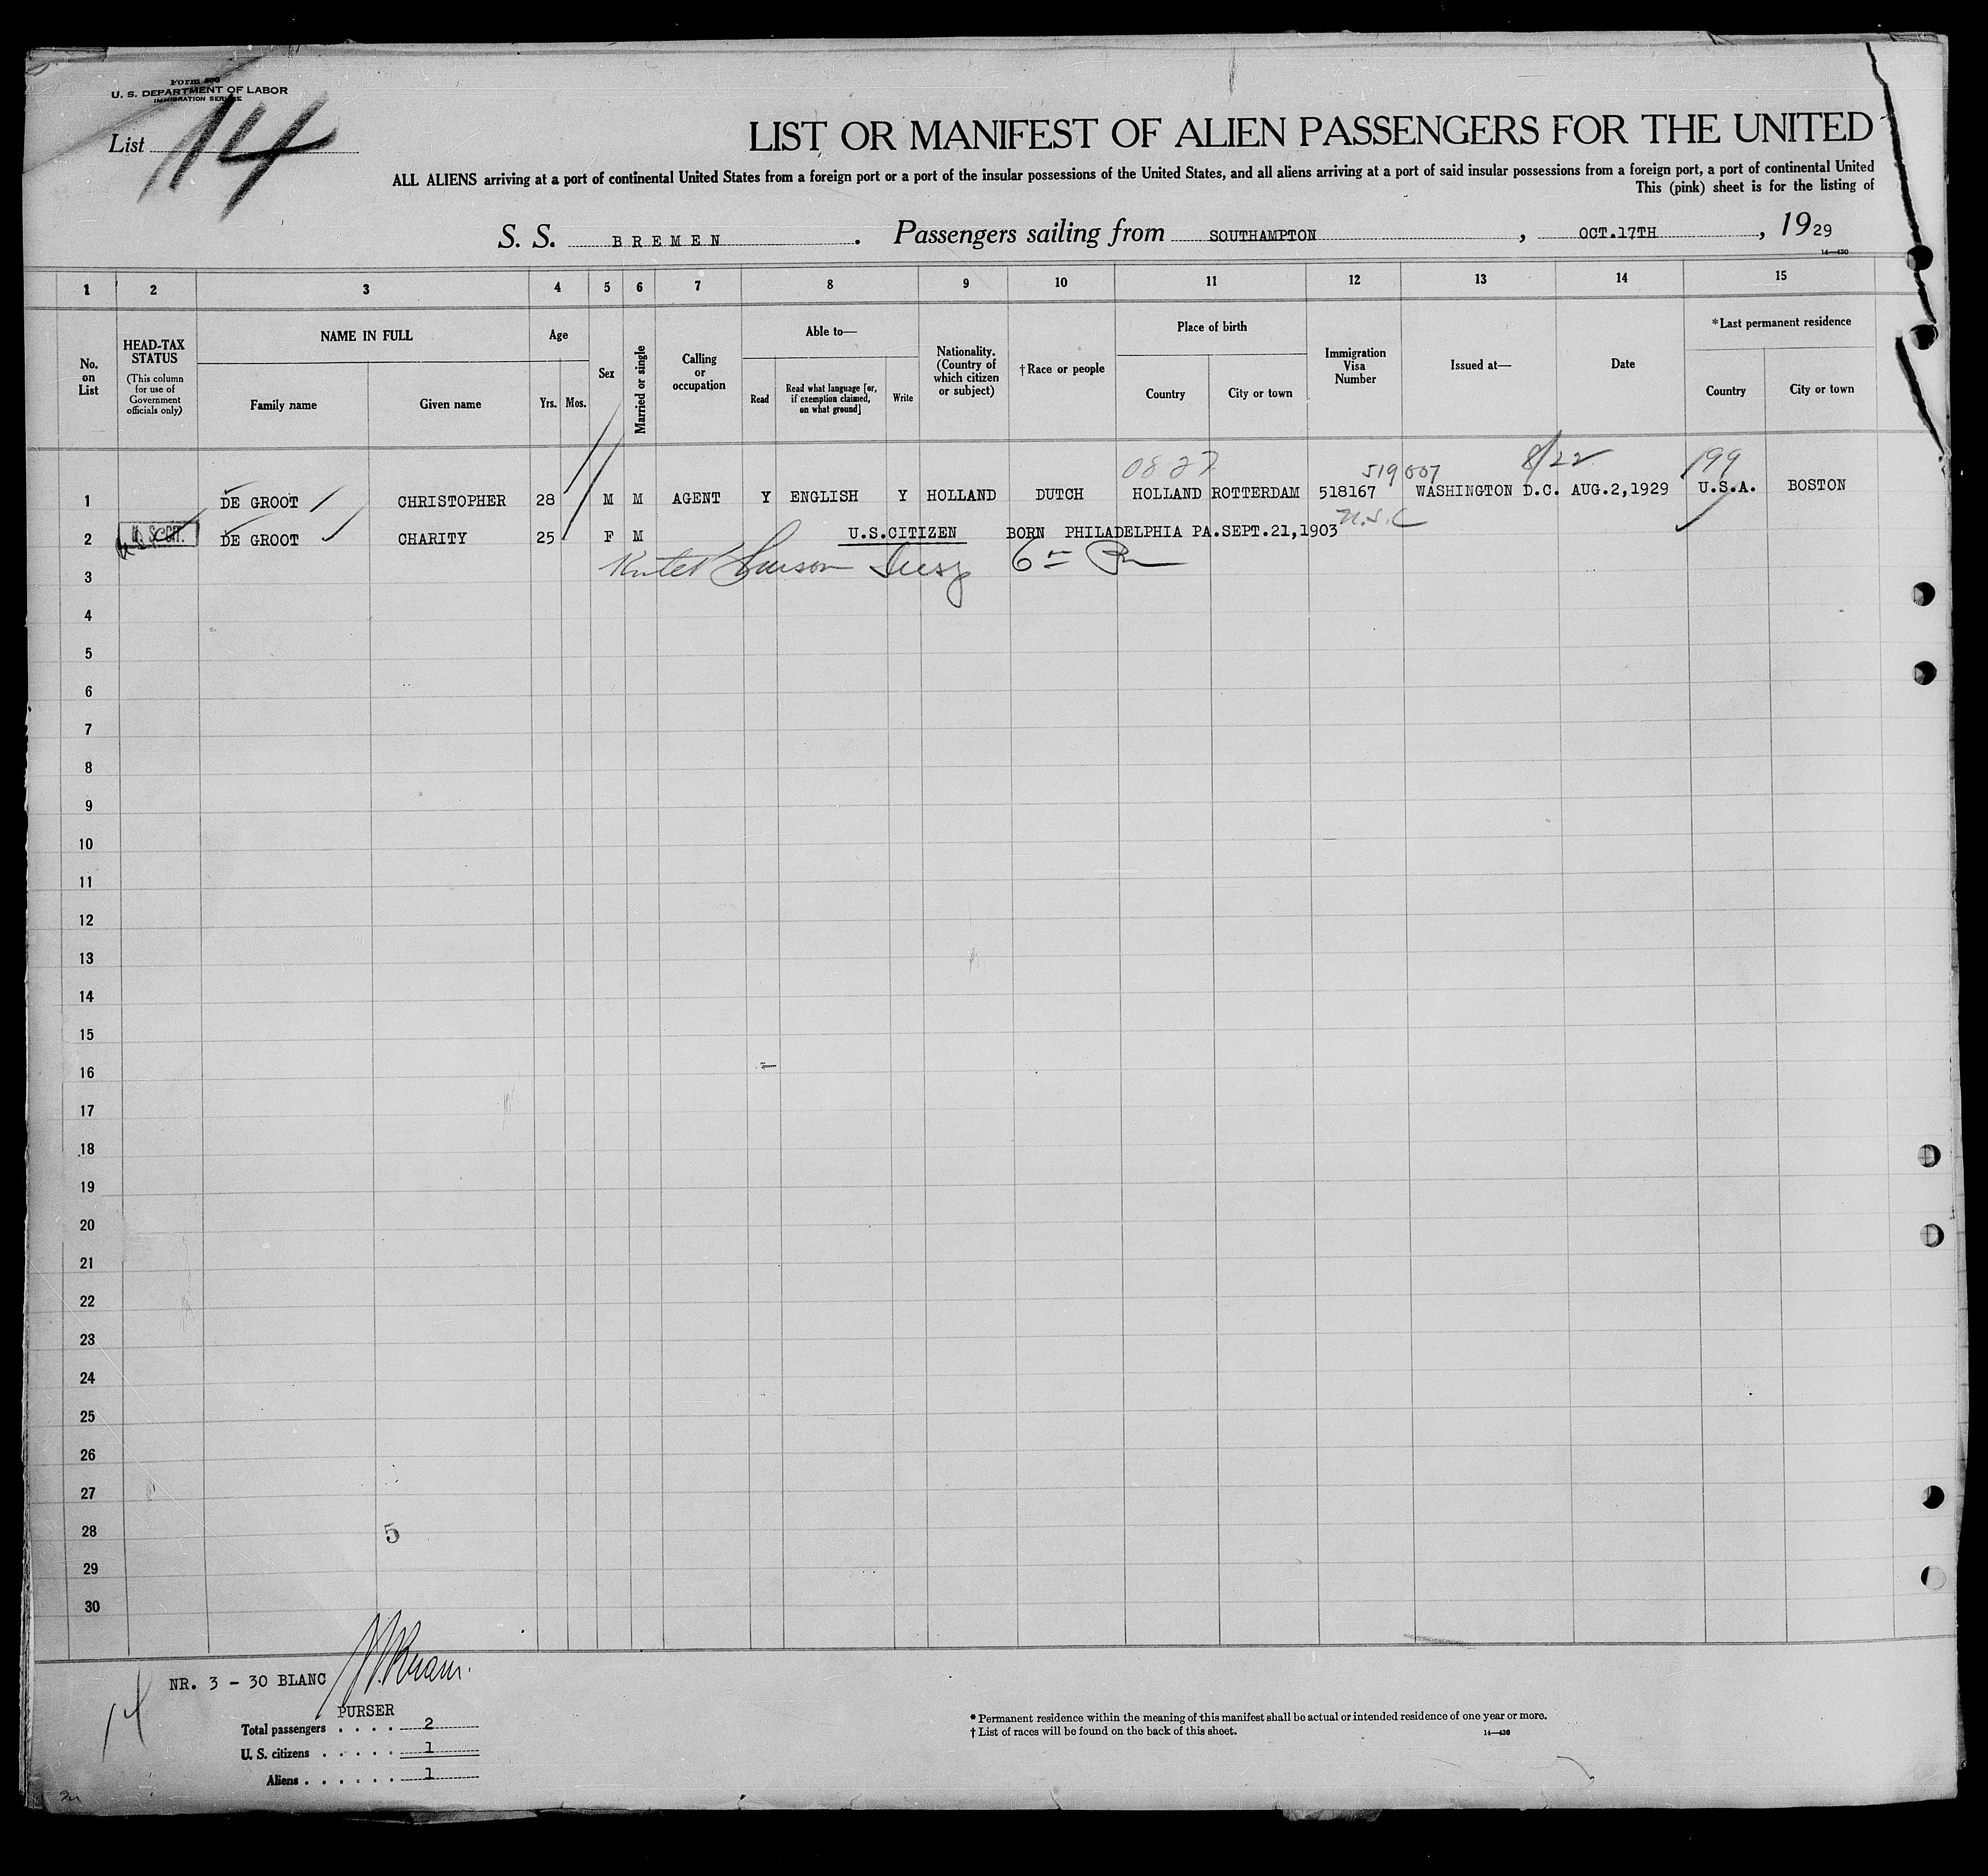 Form 500
U. S. DEPARTMENT OF LABOR
IMMIGRATION SERVICE
List 14
LIST OR MANIFEST OF ALIEN PASSENGERS FOR THE UNITED
ALL ALIENS arriving at a port of continental United States from a foreign port or a port of the insular possessions of the United States, and all aliens arriving at a port of said insular possessions from a foreign port, a port of continental United
This (pink) sheet is for the listing of
S. S. BREMEN . Passengers sailing from SOUTHAMPTON , OCT.17TH , 1929
14—430
1 2 3 4 5 6 7 8 9 10 11 12 13 14 15
No. on List
HEAD-TAX STATUS
(This column for use of Government officials only)
NAME IN FULL
Family name
Given name
Age
Yrs. Mos.
Sex
Married or single
Calling or occupation
Able to—
Read
Read what language [or, if exemption claimed, on what ground]
Write
Nationality. (Country of which citizen or subject)
† Race or people
Place of birth
Country
City or town
Immigration Visa Number
Issued at—
Date
*Last permanent residence
Country
City or town
08 27 519007 8/22 199
1 DE GROOT CHRISTOPHER 28 M M AGENT Y ENGLISH Y HOLLAND DUTCH HOLLAND ROTTERDAM 518167 WASHINGTON D.C. AUG.2,1929 U.S.A. BOSTON
U.S.C
2 U. S. CIT. DE GROOT CHARITY 25 F M U.S.CITIZEN BORN PHILADELPHIA PA.SEPT.21,1903
3
4
5
6
7
8
9
10
11
12
13
14
15
16
17
18
19
20
21
22
23
24
25
26
27
28 5
29
30
NR. 3 - 30 BLANC
14
PURSER
Total passengers . . . . 2
U. S. citizens . . . . . 1
Aliens . . . . . . 1
* Permanent residence within the meaning of this manifest shall be actual or intended residence of one year or more.
† List of races will be found on the back of this sheet.
14—430